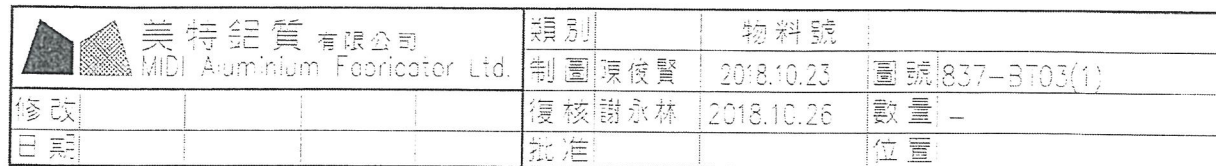 美特鋁質有限公司
MIDI Aluminium Fabricator Ltd.
類別 物料號
制圖 陳俊賢 2018.10.23 圖號 837-BT03(1)
修改 復核 謝永林 2018.10.26 數量 -
日期 批准 位置